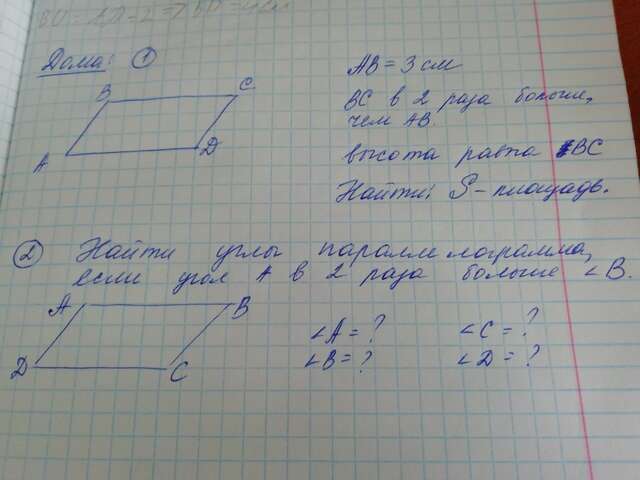 Дома: ①
B C
A D
AB = 3 см
BC в 2 раза больше,
чем AB.
высота равна BC
Найти: S - площадь.
② Найти углы параллелограмма,
если угол A в 2 раза больше ∠B.
A B
D C
∠A = ? ∠C = ?
∠B = ? ∠D = ?